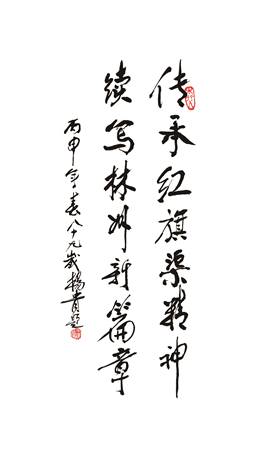 传承红旗渠精神
续写林州新篇章
丙申年春八十九岁杨贵题